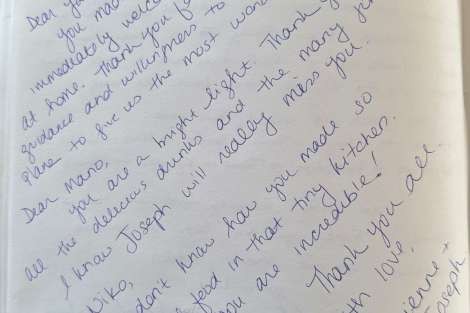 Dear
you made
immediately welcome
at home. Thank you for
guidance and willingness to
plane to give us the most
Dear Mano,
you are a bright light. Thank
all the delicious drinks and the many
I know Joseph will really miss you.
Niko,
don't know how you made so
food in that tiny kitchen.
you are incredible!
Thank you all.
with love,
+
Joseph